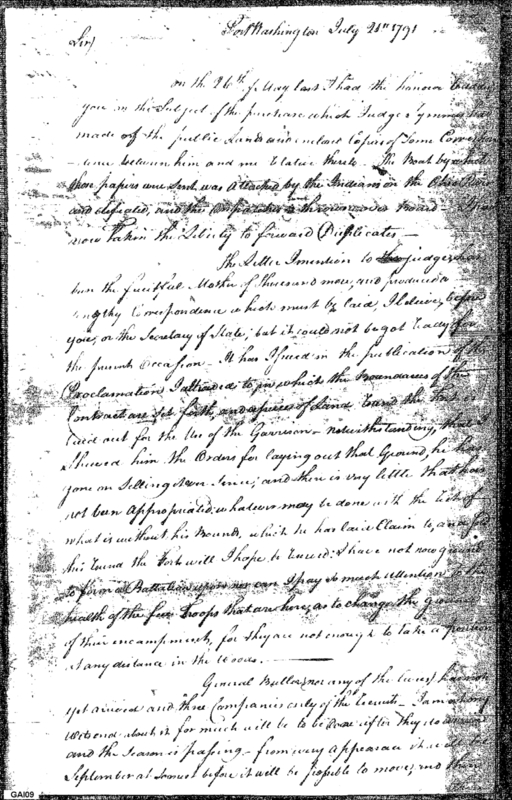 Fort Washington July 21st 1791
Sir,
on the 26th of May last I had the honour to
you on the Subject of the purchase which Judge Symmes has
made of the public Lands and enclosed Copies of Some
between him and me relative thereto. The Boat by which
those papers were Sent was attacked by the Indians on the Ohio River
and defeated, and the thrown over board — I have
now taken the Liberty to forward Duplicates —
The Letter I mention to Judge has
been the fruitful Mother of thousand more, and produced a
lengthy Correspondence which must be laid, I believe, before
you, or the Secretary of State, but it could not be got ready for
the present Occasion. It has Issued in the publication of the
Proclamation I in which the Boundaries of the
Contract are Set forth, and a piece of Land round the Fort is
laid out for the Use of the Garrison — notwithstanding, that I
Shewed him the Orders for laying out that Ground, he has
gone on Selling Since, and there is very little that has
not been Appropriated: whatever may be done with the
what is without his Bounds, which he has laid Claim to, and
this round the Fort will I hope be : I have not now ground
to form a Battalion upon nor can I pay So much Attention to the
health of the few Troops that are here, as to change the ground
of their encampment, for they are not enough to take a position
at any distance in the Woods. —
General Butler nor any of the have
yet arrived and three Companies only of the Levies — I am
about it for much will be to be done after they do arrive
and the Season is passing — from every appearance it will be
September at Soonest before it will be possible to move, and then
GAI09